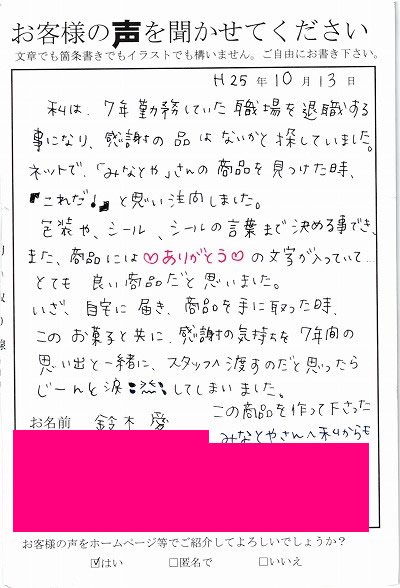 お客様の声を聞かせてください
文章でも箇条書きでもイラストでも構いません。ご自由にお書き下さい。
H25年10月13日
私は、7年勤務していた職場を退職する
事になり、感謝の品はないかと探していました。
ネットで、「みなとや」さんの商品を見つけた時、
『これだ!』と思い注文しました。
包装や、シール、シールの言葉まで決める事ができ、
また、商品には♡ありがとう♡の文字が入っていて…
とても良い商品だと思いました。
いざ、自宅に届き、商品を手に取った時、
このお菓子と共に、感謝の気持ちを7年間の
思い出と一緒に、スタッフへ渡すのだと思ったら
じーんと涙してしまいました。
お名前 鈴木 愛
この商品を作って下さった
みなとやさんへ私からも
お客様の声をホームページ等でご紹介してよろしいでしょうか?
☑はい □匿名で □いいえ